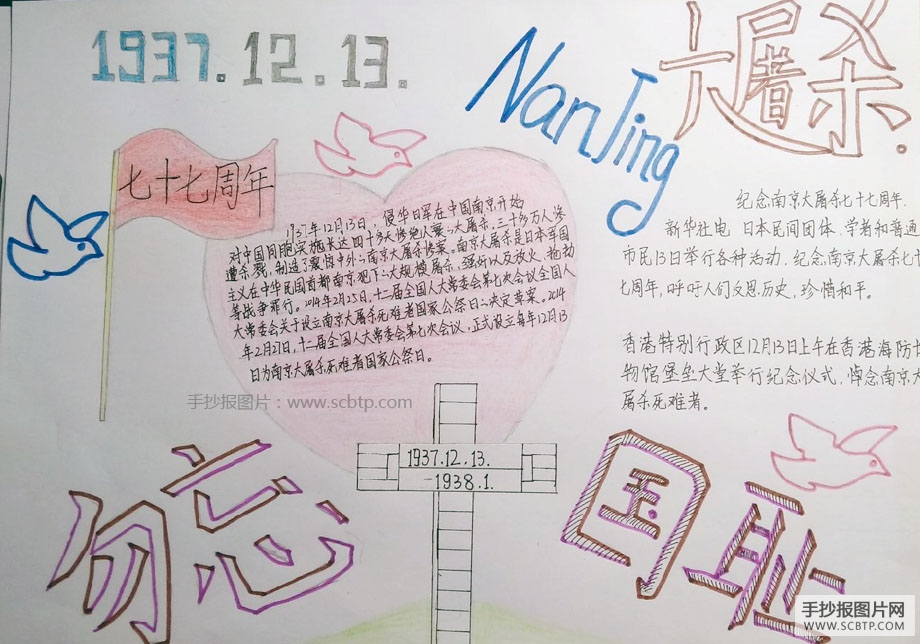 1937.12.13.
NanJing
大屠杀.
七十七周年
1937年12月13日，侵华日军在中国南京开始
对中国同胞实施长达四十多天惨绝人寰的大屠杀，三十多万人惨
遭杀戮，制造了震惊中外的南京大屠杀惨案。南京大屠杀是日本军国
主义在中华民国首都南京犯下的大规模屠杀，强奸以及放火、抢劫
等战争罪行。2014年2月25日，十二届全国人大常委会第七次会议全国人
大常委会关于设立南京大屠杀死难者国家公祭日的决定草案。2014
年2月27日，十二届全国人大常委会第七次会议，正式设立每年12月13
日为南京大屠杀死难者国家公祭日。
纪念南京大屠杀七十七周年.
新华社电 日本民间团体、学者和普通
市民13日举行各种活动，纪念南京大屠杀七十
七周年，呼吁人们反思历史，珍惜和平。
香港特别行政区12月13日上午在香港海防博
物馆堡垒大堂举行纪念仪式，悼念南京大
屠杀死难者。
手抄报图片：www.scbtp.com
1937.12.13.
-1938.1.
勿忘
国耻
手抄报图片网
WWW.SCBTP.COM